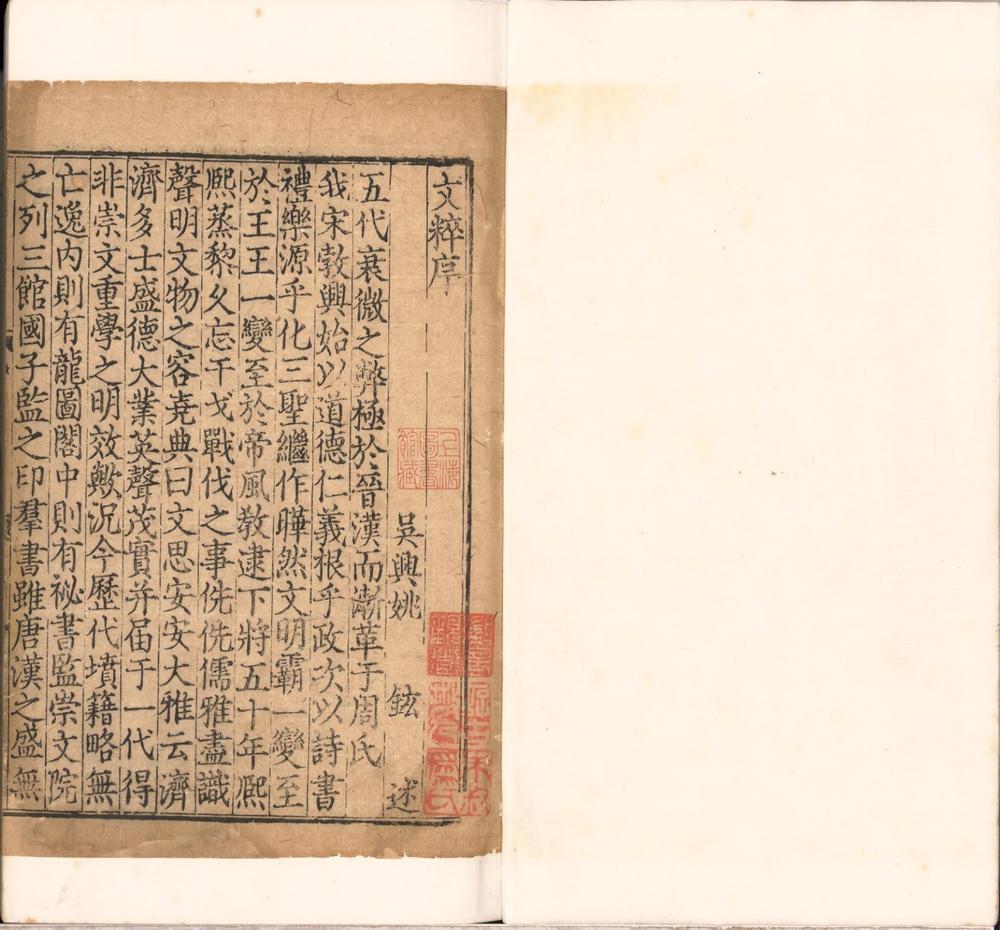 文粹序
吳興姚　鉉　述
五代衰微之弊極於晉漢而漸革于周氏
我宋勃興始以道德仁義根乎政次以詩書
禮樂源乎化三聖繼作曄然文明霸一變至
於王王一變至於帝風教逮下將五十年熈
熈蒸黎久忘干戈戰伐之事侁侁儒雅盡識
聲明文物之容堯典曰文思安安大雅云濟
濟多士盛德大業英聲茂實并届于一代得
非崇文重學之明效歟況今歷代墳籍略無
亡逸内則有龍圖閣中則有祕書監崇文院
之列三館國子監之印羣書雖唐漢之盛無